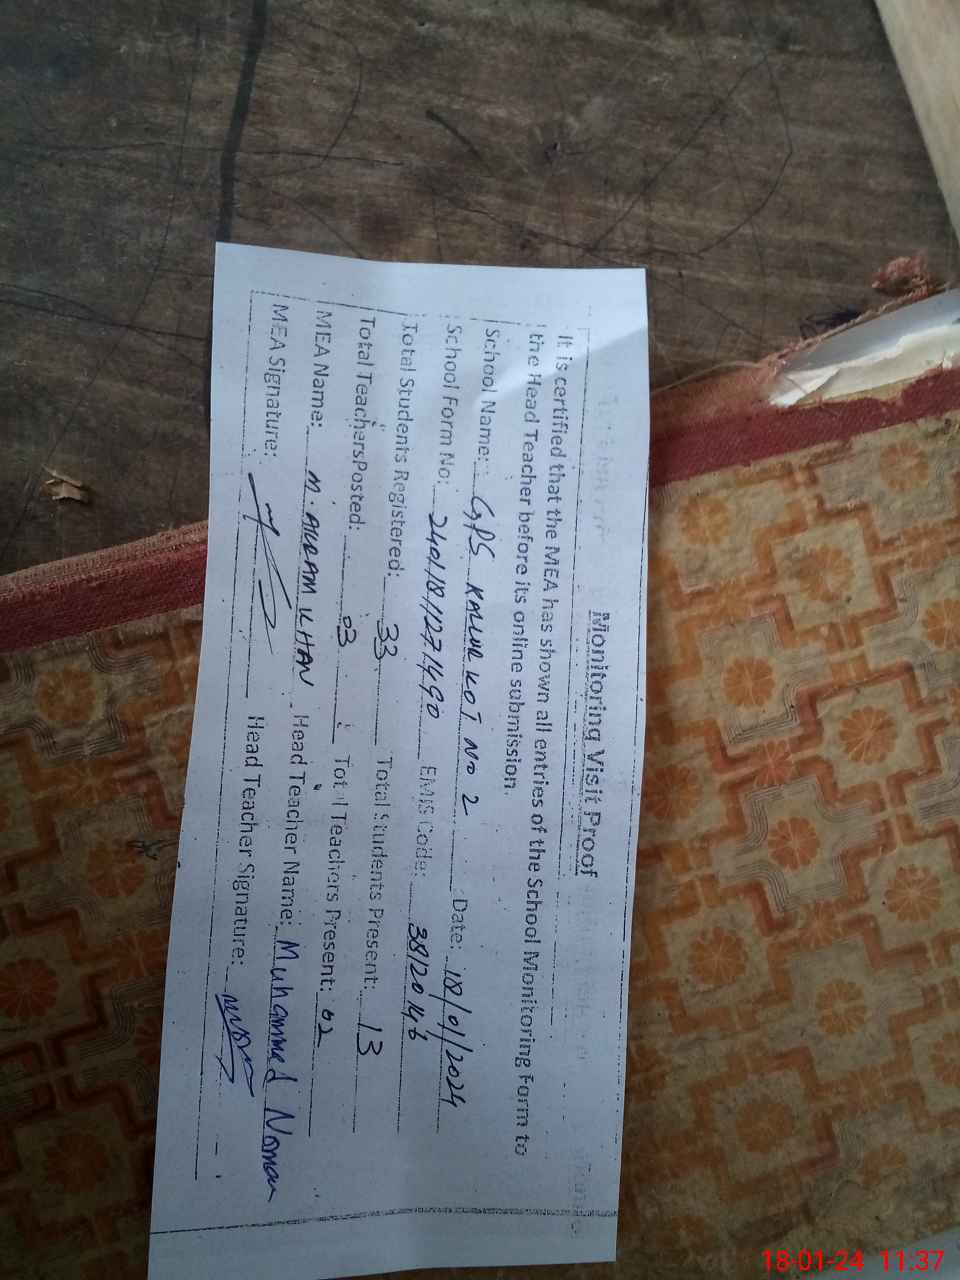 Monitoring Visit Proof
It is certified that the MEA has shown all entries of the School Monitoring Form to
the Head Teacher before its online submission.
School Name: GPS KALUR KOT NO 2 Date: 18/01/2024
School Form No: EMIS Code: 38120146
Total Students Registered: 33 Total Students Present: 13
Total Teachers Posted: 03 Total Teachers Present: 02
MEA Name: M. AKRAM KHAN Head Teacher Name: Muhammad Noman
MEA Signature: Head Teacher Signature:
18-01-24 11:37